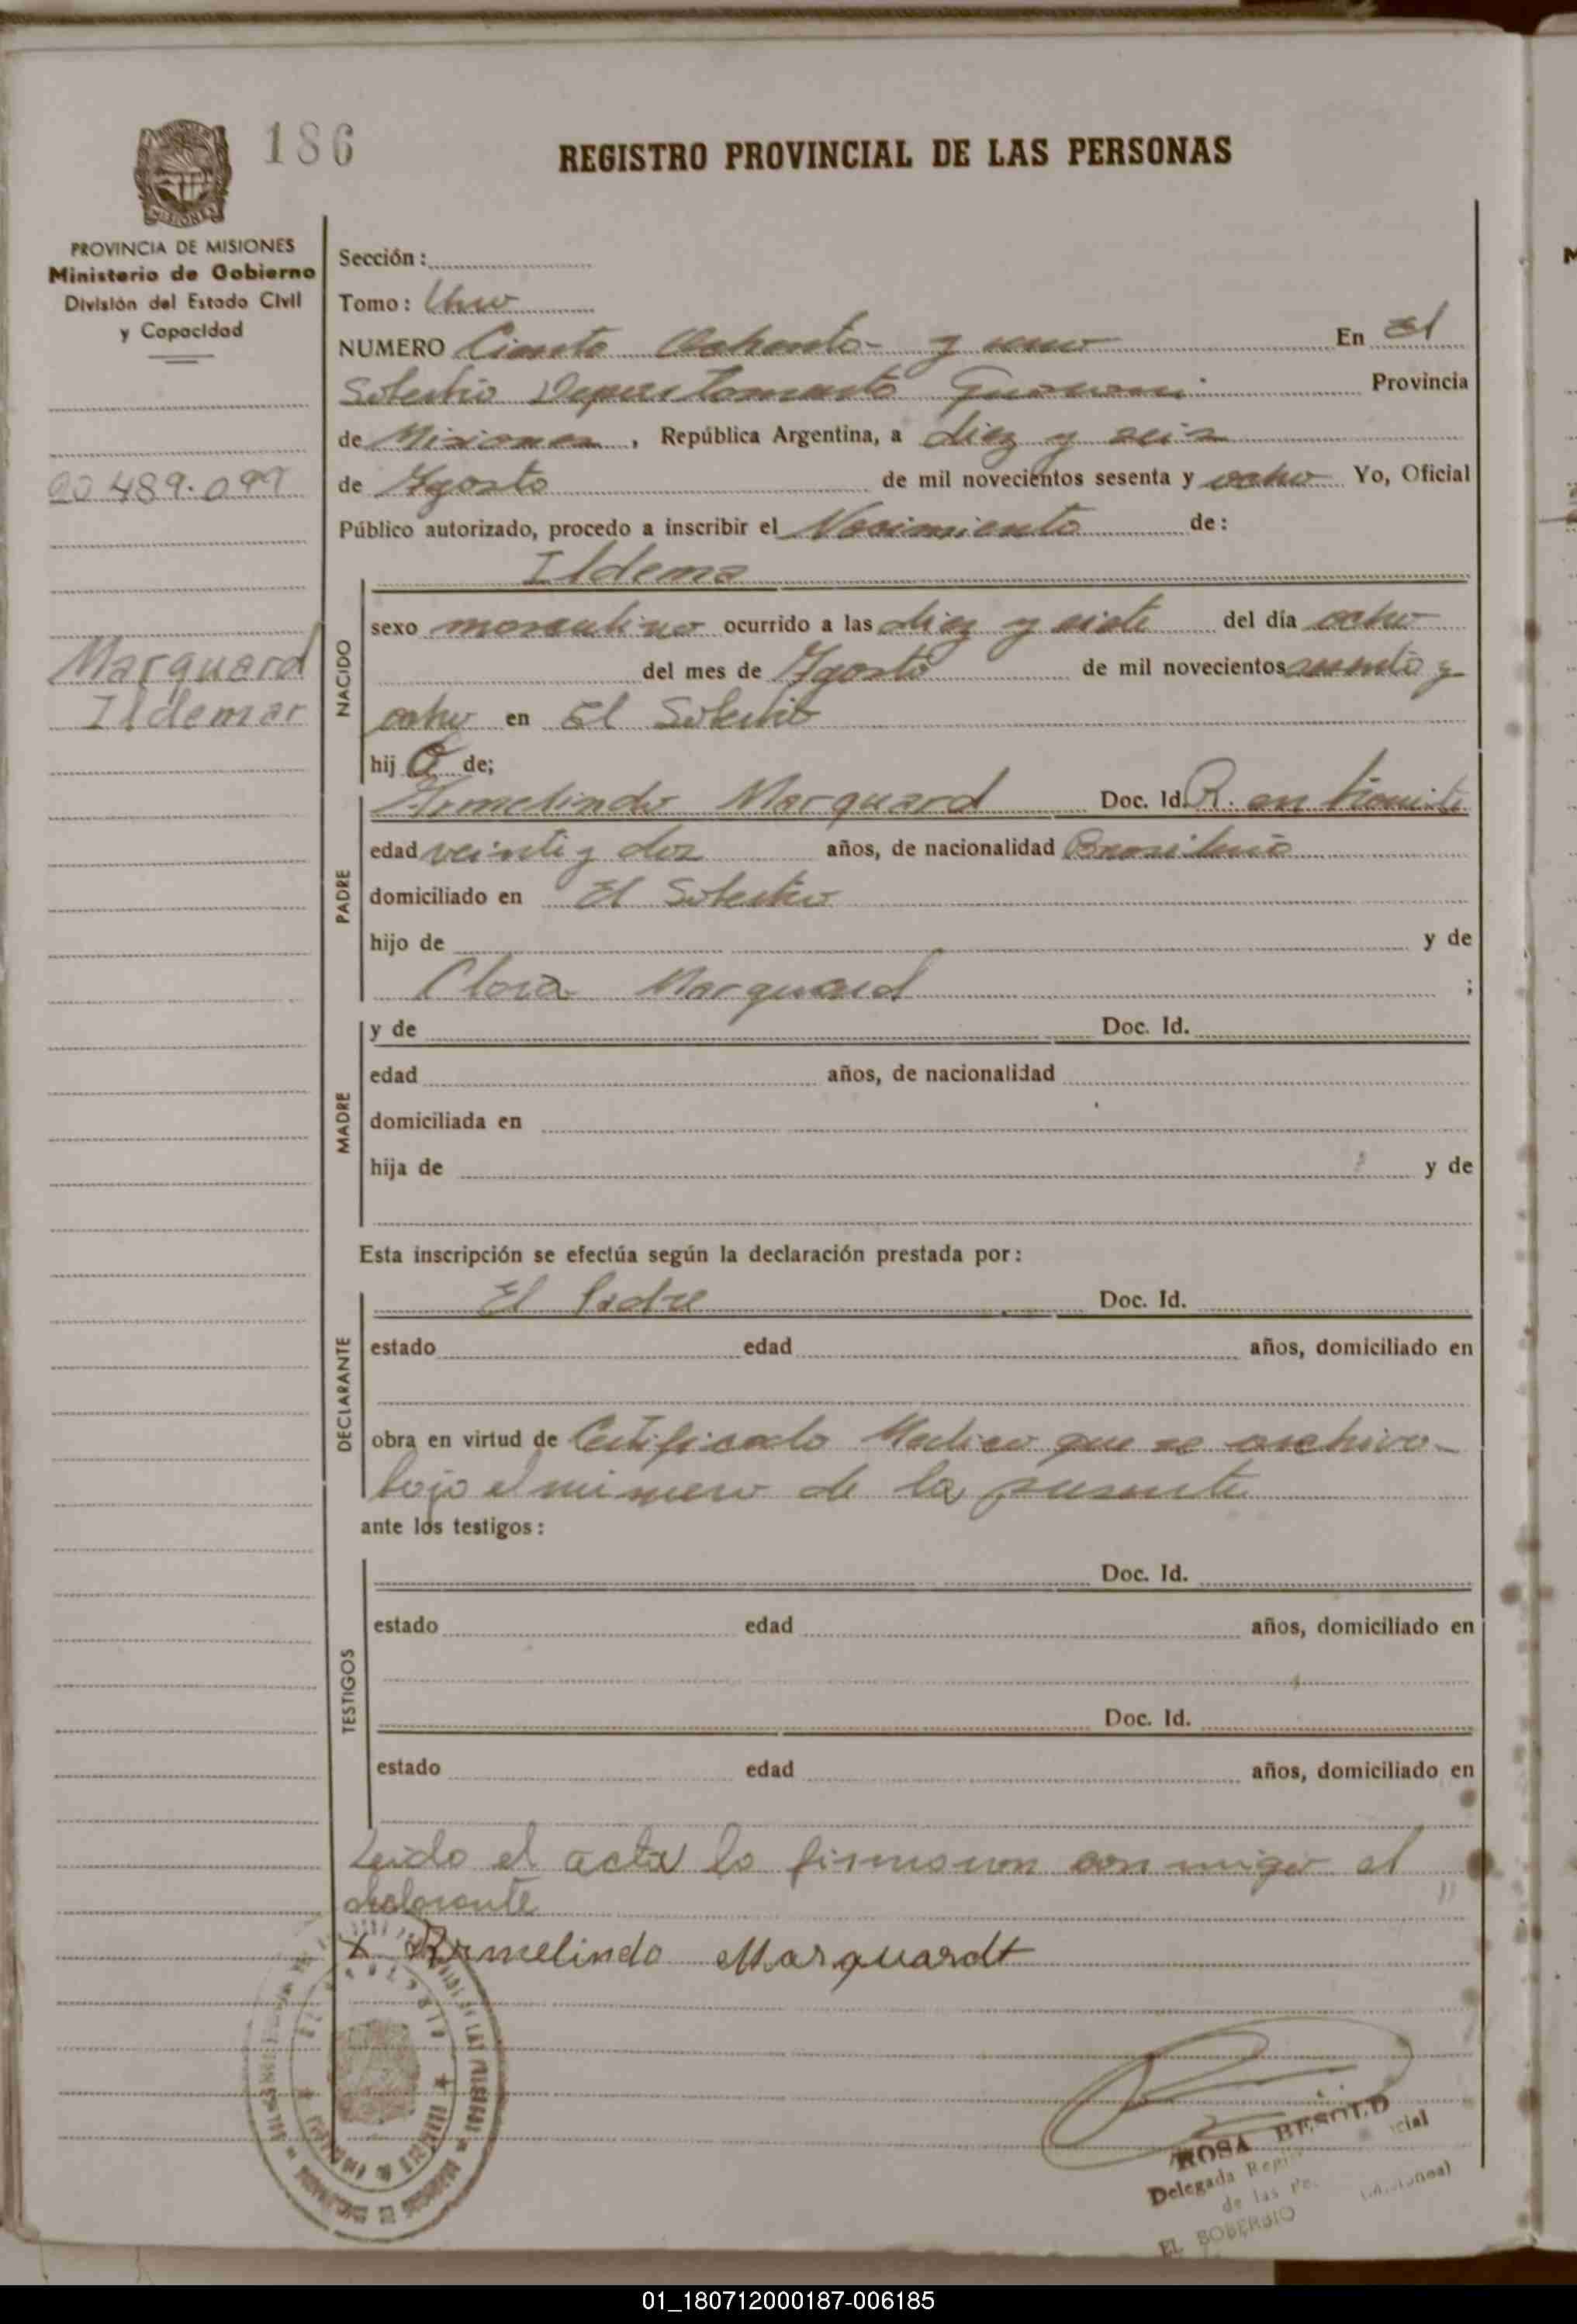 186
REGISTRO PROVINCIAL DE LAS PERSONAS
MISIONES
PROVINCIA DE MISIONES
Ministerio de Gobierno
División del Estado Civil
y Capacidad
20 489.099
Marquard
Ildemar
Sección:
Tomo: Uno
NUMERO Ciento Ochenta y uno En El
Soberbio Departamento Guarani Provincia
de Misiones, República Argentina, a diez y seis
de Agosto de mil novecientos sesenta y ocho Yo, Oficial
Público autorizado, procedo a inscribir el Nacimiento de:
NACIDO
Ildema
sexo masculino ocurrido a las diez y siete del día ocho
del mes de Agosto de mil novecientos sesenta y
ocho en El Soberbio
hijo de;
PADRE
Armelindo Marquard Doc. Id. R. en tramite
edad veinti y dos años, de nacionalidad Brasileño
domiciliado en El Soberbio
hijo de y de
Clara Marquard ;
MADRE
y de Doc. Id.
edad años, de nacionalidad
domiciliada en
hija de y de
Esta inscripción se efectúa según la declaración prestada por:
DECLARANTE
El Padre Doc. Id.
estado edad años, domiciliado en
obra en virtud de Certificado Medico que se archiva
bajo el numero de la presente
ante los testigos:
TESTIGOS
Doc. Id.
estado edad años, domiciliado en
Doc. Id.
estado edad años, domiciliado en
Leido el acta la firmaron conmigo el
declarante
x Armelindo Marquardt
ROSA BESOLD
Delegada
de las
EL SOBERBIO (Misiones)
01_180712000187-006185